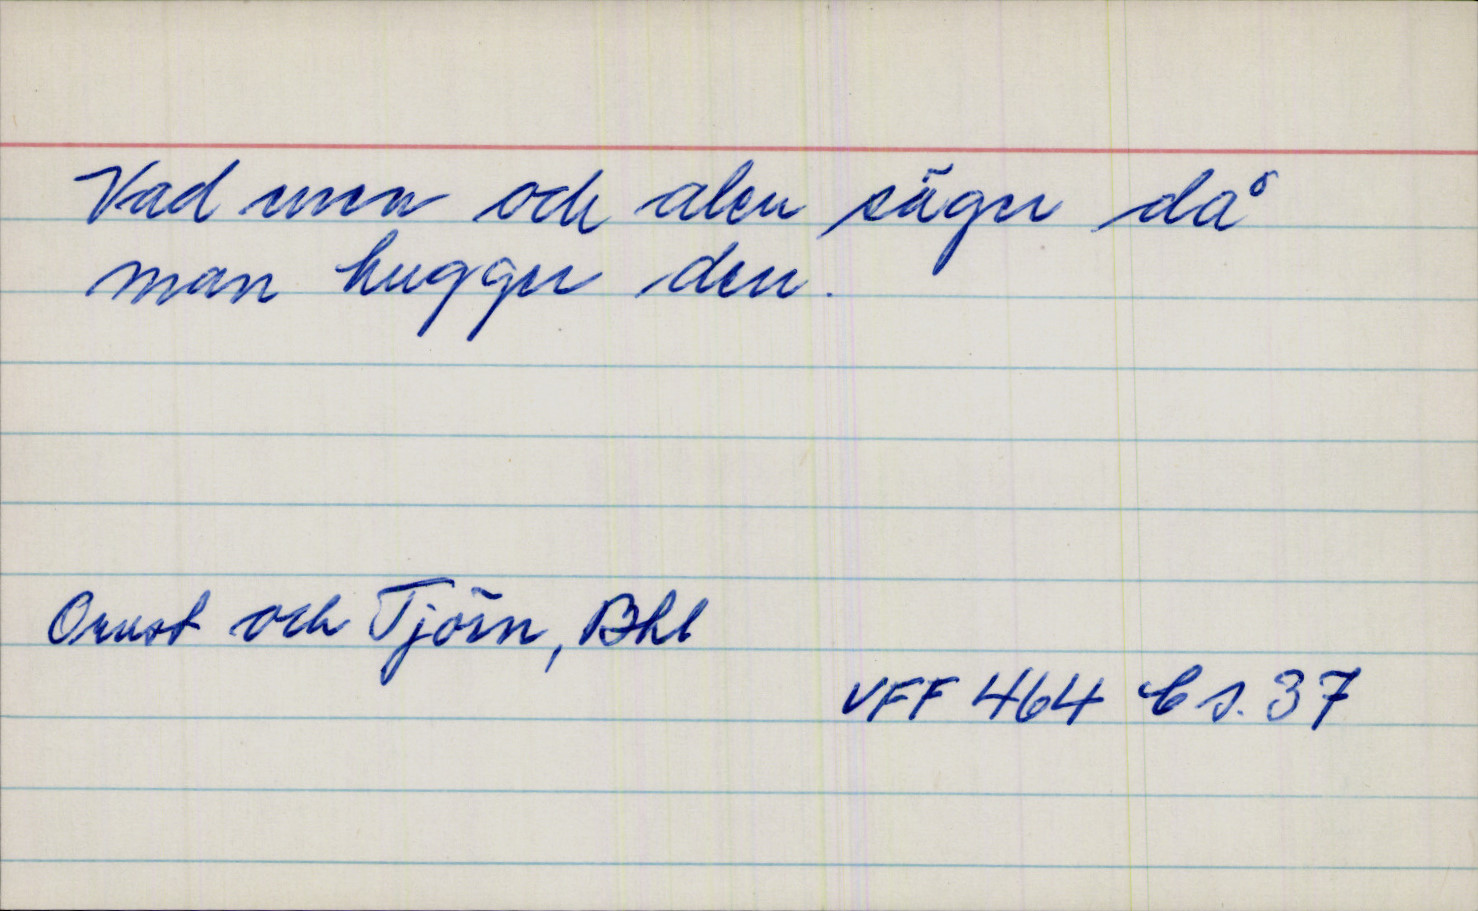 Vad enen och alen säger då
man hugger den.
Orust och Tjörn, Bhl
VFF 464 b s. 37